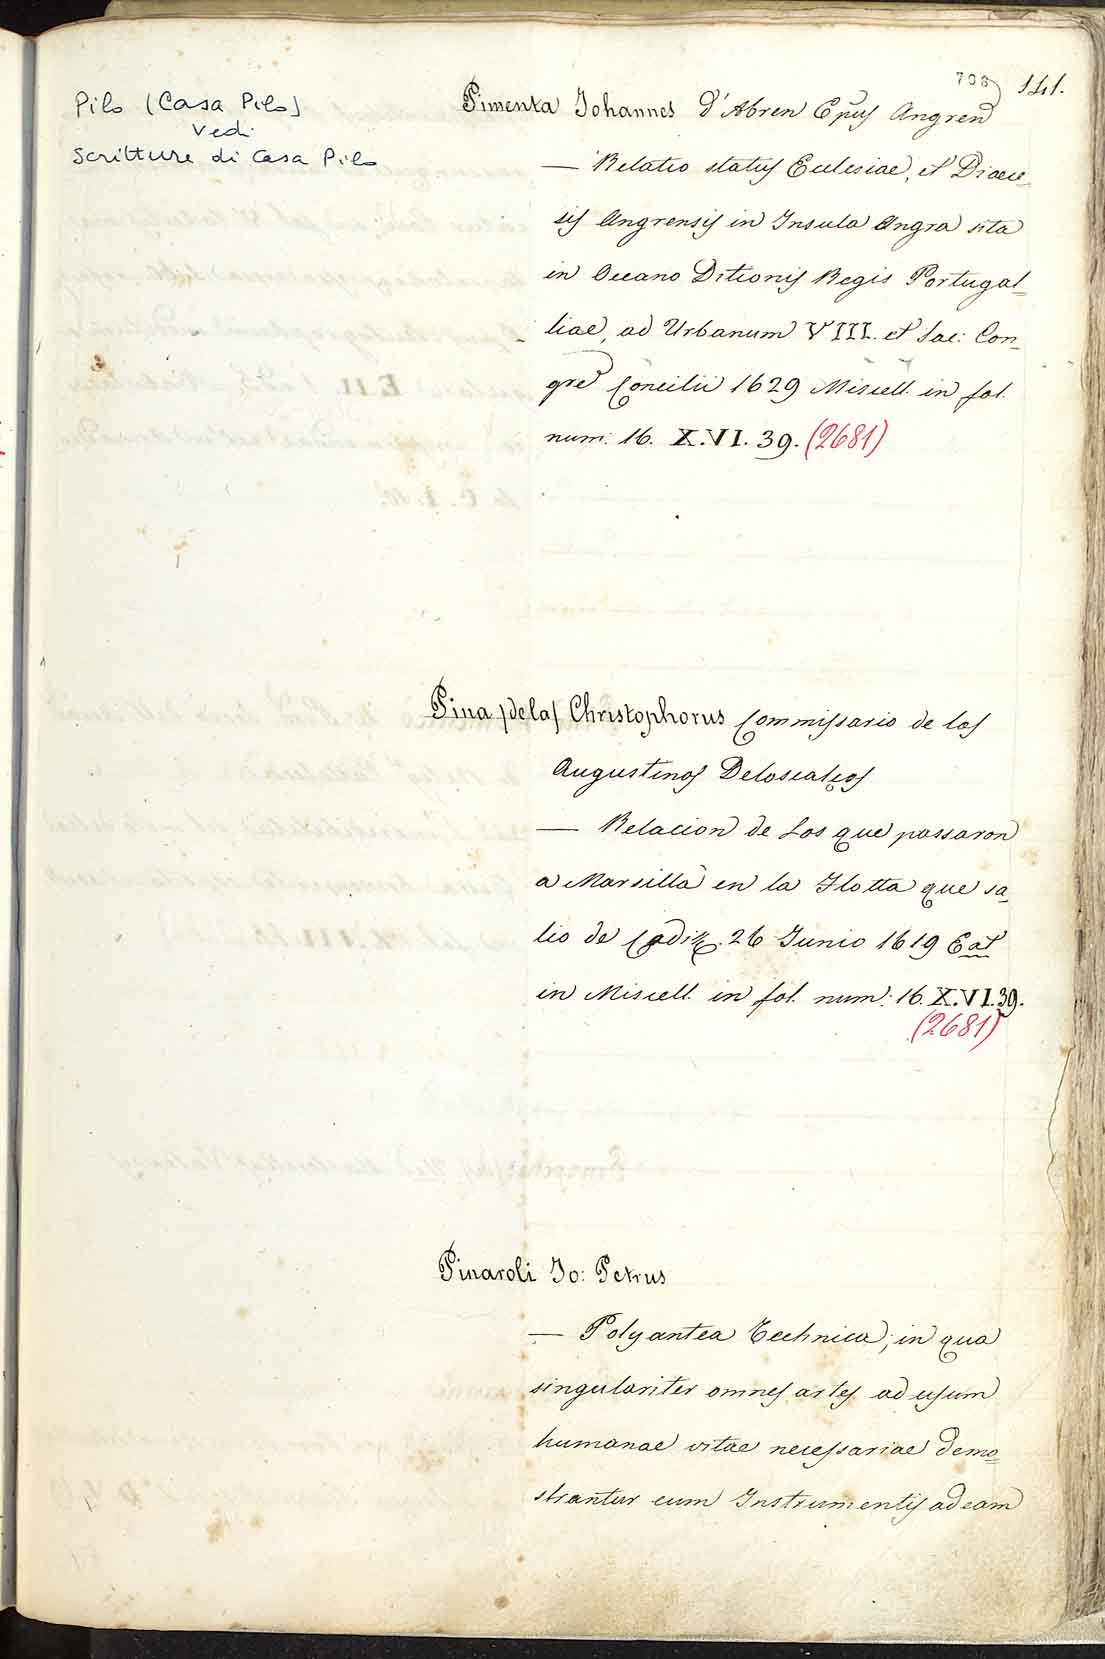 708
141.
Pilo (Casa Pilo)
vedi
Scritture di Casa Pilo
Pimenta Johannes d'Abreu Epus Angren
— Relatio status Ecclesiae, et Dioece-
sis Angrensis in Insula Angra sita
in Oceano Ditionis Regis Portugal-
liae, ad Urbanum VIII. et Sac: Con-
gre Concilii 1629 Miscell. in fol.
num: 16. X.VI.39. (2681)
Pina /dela/ Christophorus Commissario de los
Augustinos Deloscalços
— Relacion de Los que passaron
a Marsilla en la Flotta que sa-
lio de Cadiz. 26 Junio 1619 Eat
in Miscell. in fol. num: 16. X.VI.39.
(2681)
Pinaroli Jo: Petrus
— Polyantea Technica, in qua
singulariter omnes artes ad usum
humanae vitae necessariae demo-
strantur cum Instrumentis ad eam